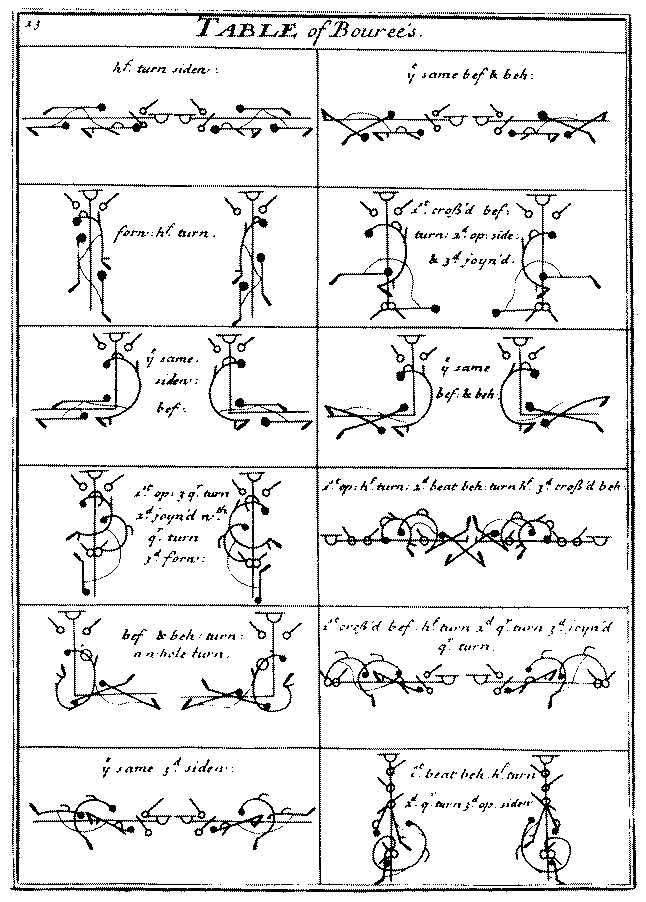 23
TABLE of Bouree's.
hf. turn sidew:
ẙ same bef & beh:
forw: hf. turn.
1st. croß'd bef:
turn: 2d. op: side:
& 3d joyn'd.
ẙ same.
sidew:
bef:
ẙ same
bef: & beh:
1st. op: 3 qr. turn
2d joyn'd wth
qr. turn
3d forw:
1st. op: hf. turn: 2d beat beh: turn hf. 3d croß'd beh:
bef & beh: turn:
a whole turn.
1st croß'd bef: hf turn 2d qr. turn 3d joyn'd
qr turn.
ẙ same 3d sidew:
1st. beat beh. hf. turn
2d. qr turn 3d op. sidew